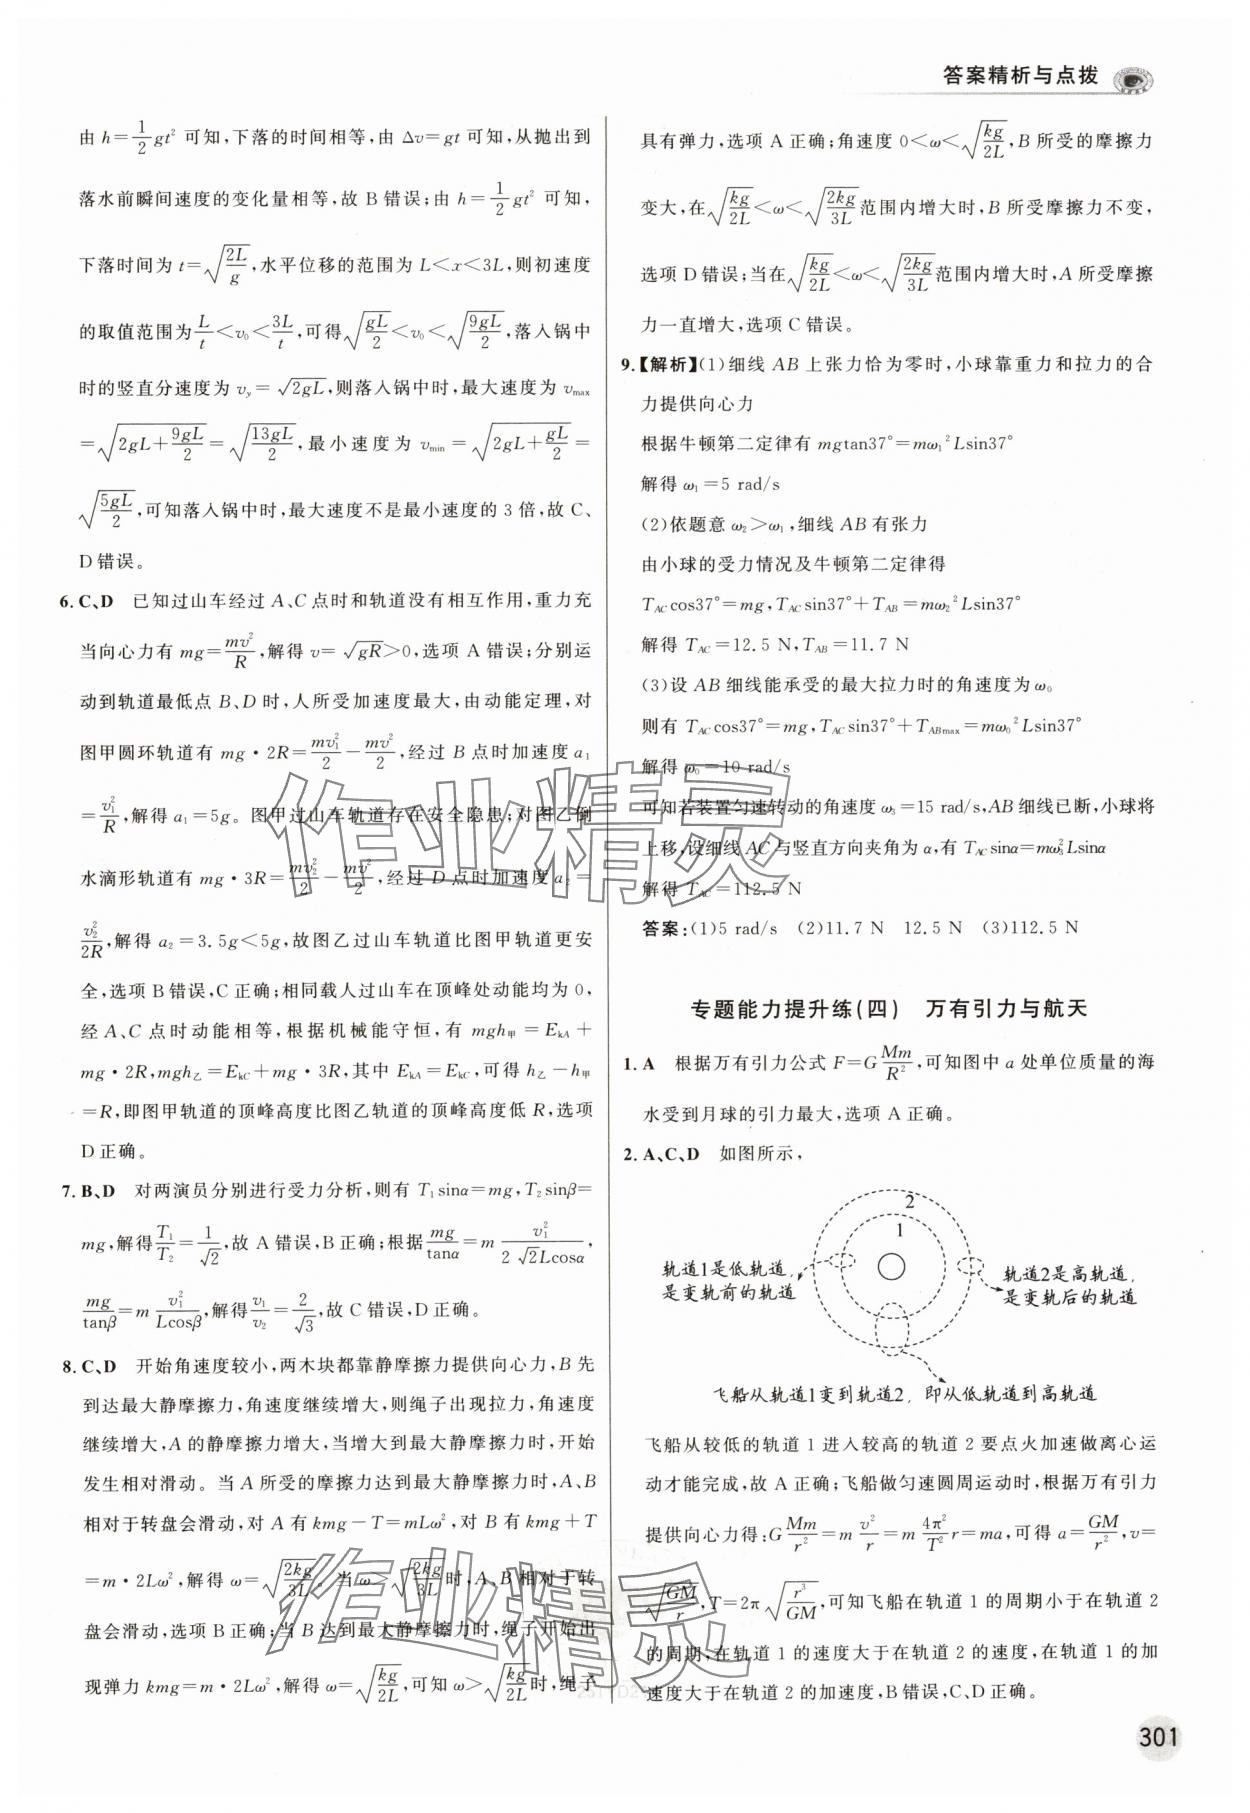 答案精析与点拨
由 h=1/2 gt² 可知,下落的时间相等,由 Δv=gt 可知,从抛出到
落水前瞬间速度的变化量相等,故 B 错误;由 h=1/2 gt² 可知,
下落时间为 t=√(2L/g),水平位移的范围为 L<x<3L,则初速度
的取值范围为 L/t<v₀<3L/t,可得√(gL/2)<v₀<√(9gL/2),落入锅中
时的竖直分速度为 v_y=√(2gL),则落入锅中时,最大速度 v_max
=√(2gL+9gL/2)=√(13gL/2),最小速度为 v_min=√(2gL+gL/2)=
√(5gL/2),可知落入锅中时,最大速度不是最小速度的 3 倍,故 C、
D 错误。
6. C、D 已知过山车经过 A、C 点时和轨道没有相互作用,重力充
当向心力有 mg=mv²/R,解得 v=√(gR)>0,选项 A 错误;分别运
动到轨道最低点 B、D 时,人所受加速度最大,由动能定理,对
图甲圆环轨道有 mg·2R=mv₁²/2-mv²/2,经过 B 点时加速度 a₁
=v₁²/R,解得 a₁=5g。图甲过山车轨道存在安全隐患;对图乙倒
水滴形轨道有 mg·3R=mv₂²/2-mv²/2,经过 D 点时加速度 a₂=
v₂²/2R,解得 a₂=3.5g<5g,故图乙过山车轨道比图甲轨道更安
全,选项 B 错误,C 正确;相同载人过山车在顶峰处动能均为 0,
经 A、C 点时动能相等,根据机械能守恒,有 mgh甲=E_kA+
mg·2R,mgh乙=E_kC+mg·3R,其中 E_kA=E_kC,可得 h乙-h甲
=R,即图甲轨道的顶峰高度比图乙轨道的顶峰高度低 R,选项
D 正确。
7. B、D 对两演员分别进行受力分析,则有 T₁sinα=mg,T₂sinβ=
mg,解得T₁/T₂=1/√2,故 A 错误,B 正确;根据mg/tanα=m v₁²/(2√2Lcosα),
mg/tanβ=m v₁²/(Lcosβ),解得v₁/v₂=2/√3,故 C 错误,D 正确。
8. C、D 开始角速度较小,两木块都靠静摩擦力提供向心力,B 先
到达最大静摩擦力,角速度继续增大,则绳子出现拉力,角速度
继续增大,A 的静摩擦力增大,当增大到最大静摩擦力时,开始
发生相对滑动。当 A 所受的摩擦力达到最大静摩擦力时,A、B
相对于转盘会滑动,对 A 有 kmg-T=mLω²,对 B 有 kmg+T
=m·2Lω²,解得 ω=√(2kg/3L)。当 ω>√(2kg/3L)时,A、B 相对于转
盘会滑动,选项 B 正确;当 B 达到最大静摩擦力时,绳子开始出
现弹力 kmg=m·2Lω²,解得 ω=√(kg/2L),可知 ω>√(kg/2L)时,绳子
具有弹力,选项 A 正确;角速度 0<ω<√(kg/2L),B 所受的摩擦力
变大,在√(kg/2L)<ω<√(2kg/3L)范围内增大时,B 所受摩擦力不变,
选项 D 错误;当在√(kg/2L)<ω<√(2kg/3L)范围内增大时,A 所受摩擦
力一直增大,选项 C 错误。
9.【解析】(1)细线 AB 上张力恰为零时,小球靠重力和拉力的合
力提供向心力
根据牛顿第二定律有 mgtan37°=mω₁²Lsin37°
解得 ω₁=5 rad/s
(2)依题意 ω₂>ω₁,细线 AB 有张力
由小球的受力情况及牛顿第二定律得
T_AC cos37°=mg,T_AC sin37°+T_AB=mω₂²Lsin37°
解得 T_AC=12.5 N,T_AB=11.7 N
(3)设 AB 细线能承受的最大拉力时的角速度为 ω₀
则有 T_AC cos37°=mg,T_AC sin37°+T_ABmax=mω₀²Lsin37°
解得 ω₀=10 rad/s
可知若装置匀速转动的角速度 ω₃=15 rad/s,AB 细线已断,小球将
上移,设细线 AC 与竖直方向夹角为 α,有 T_AC sinα=mω₃²Lsinα
解得 T_AC=112.5 N
答案:(1)5 rad/s (2)11.7 N 12.5 N (3)112.5 N
专题能力提升练(四) 万有引力与航天
1. A 根据万有引力公式 F=G Mm/R²,可知图中 a 处单位质量的海
水受到月球的引力最大,选项 A 正确。
2. A、C、D 如图所示,
2
1
轨道1是低轨道,
是变轨前的轨道
轨道2是高轨道,
是变轨后的轨道
飞船从轨道1变到轨道2,即从低轨道到高轨道
飞船从较低的轨道 1 进入较高的轨道 2 要点火加速做离心运
动才能完成,故 A 正确;飞船做匀速圆周运动时,根据万有引力
提供向心力得:G Mm/r²=m v²/r=m 4π²/T² r=ma,可得 a=GM/r²,v=
√(GM/r),T=2π√(r³/GM),可知飞船在轨道 1 的周期小于在轨道 2
的周期,在轨道 1 的速度大于在轨道 2 的速度,在轨道 1 的加
速度大于在轨道 2 的加速度,B 错误,C、D 正确。
301
作业精灵
作业精灵